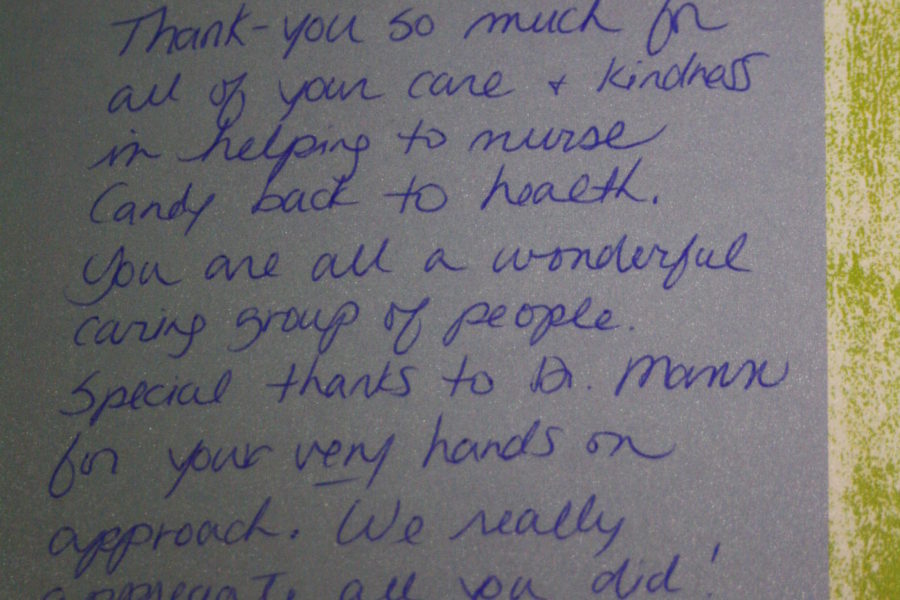 Thank-you so much for
all of your care + kindness
in helping to nurse
Candy back to health.
You are all a wonderful
caring group of people.
Special thanks to Dr. Mann
for your very hands on
approach. We really
appreciate all you did!